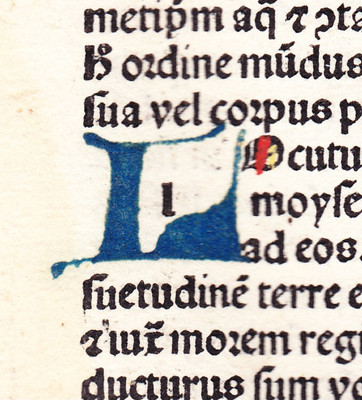 metip̄m aq̄ ⁊ ꝯta
h̄ ordine mūdus
ſua vel corpus p
LOcutu
l moyſe
ad eos.
ſuetudinē terre e
⁊ iux̄ morem reg
ducturus ſum vo